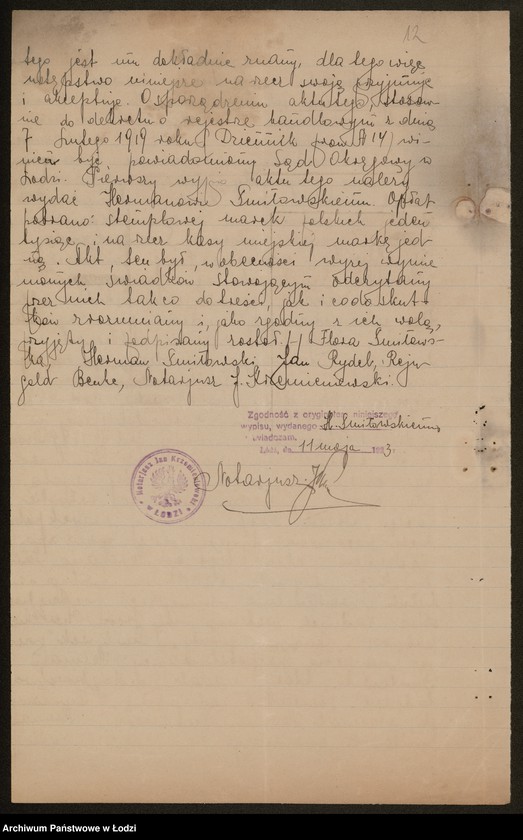 12
tego jest im dokładnie znany, dla tego więc
następstwo niniejsze na rzecz swoją przyjmuje
i akceptuje. O sporządzeniu aktu tego, stosow-
nie do dekretu o rejestrze handlowym z dnia
7 lutego 1919 roku (Dziennik praw № 14) wi-
nien być powiadomiony Sąd Okręgowy w
Łodzi. Pierwszy wypis aktu tego należy
wydać Hermanowi Smiłowskiemu. Opłat
pobrano: stemplowej marek polskich jeden
tysiąc i na rzecz kasy miejskiej markę jed
ną. Akt ten był, w obecności wyżej wymie
nionych świadków stawającym odczytany
przez nich tak co do treści, jak i co do skut-
ków zrozumiany i, jako zgodny z ich wolą,
przyjęty i podpisany został. (-) Flora Smiłows-
ka, Herman Smiłowski, Jan Rydel, Rejn-
gold Benke, Notarjusz J. Krzemieniewski.
Zgodność z oryginałem niniejszego
wypisu, wydanego H. Smiłowskiemu
poświadczam.
Łódź, dn. 11 maja 1923 r.
Notarjusz Jan Krzemieniewski
w ŁODZI
Notarjusz
Archiwum Państwowe w Łodzi